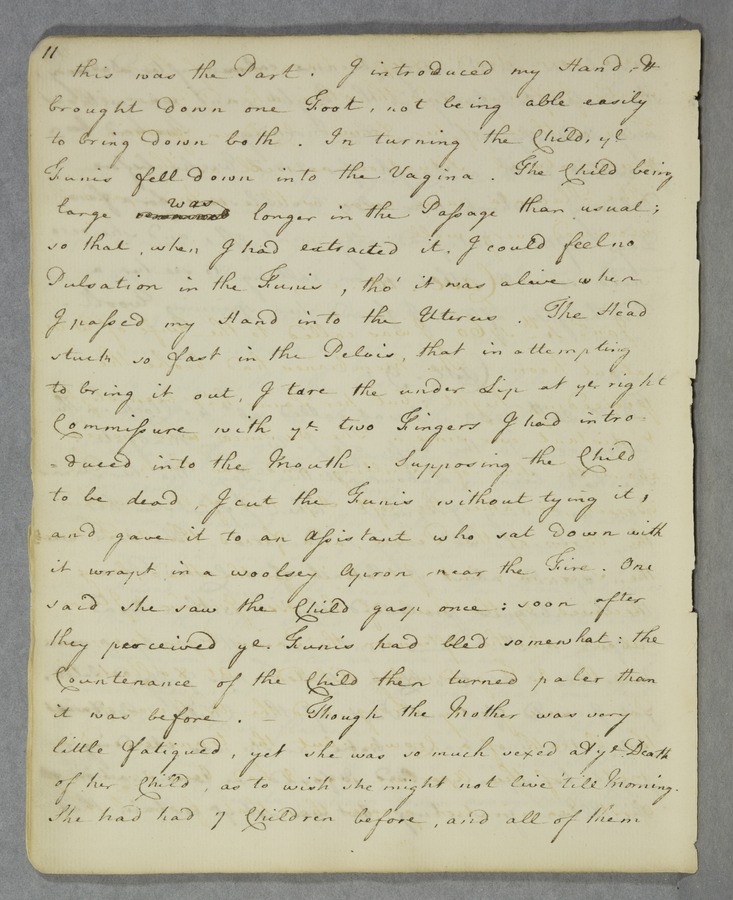 11
this was the Part. I introduced my Hand, &
brought down one Foot, not being able easily
to bring down both. In turning the Child, ye
Funis fell down into the Vagina. The Child being
large was longer in the Passage than usual;
so that, when I had extracted it, I could feel no
Pulsation in the Funis, tho' it was alive when
I passed my Hand into the Uterus. The Head
stuck so fast in the Pelvis, that in attempting
to bring it out, I tore the under Lip at ye right
Commissure with ye two Fingers I had intro=
=duced into the Mouth. Supposing the Child
to be dead, I cut the Funis without tying it,
and gave it to an Assistant who sat down with
it wrapt in a woolsey Apron near the Fire. One
said she saw the Child gasp once: soon after
they perceived ye Funis had bled somewhat: the
Countenance of the Child then turned paler than
it was before. – Though the Mother was very
little fatigued, yet she was so much vexed at ye Death
of her Child, as to wish she might not live 'till Morning.
She had had 7 Children before, and all of them